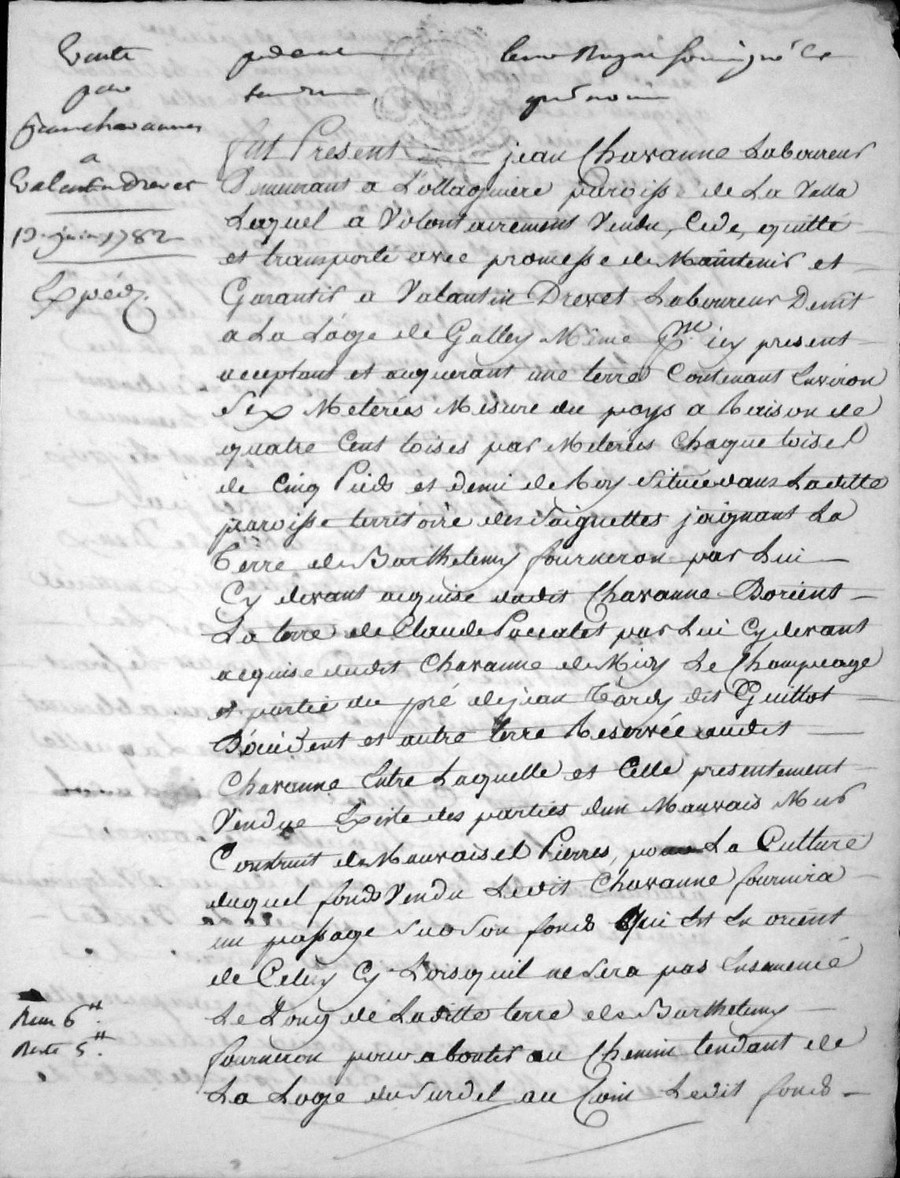 Vente
par
Jean chavannes
a
Valentin Drevet
13 juin 1782
Expéd.
par devant le no. Royal soussigné et
temoins
fut Present jean Chavanne Laboureur
Demeurant a L'ollagniere paroisse de La Valla
Lequel a Volontairement Vendu, Cede, quitté
et transporté avec promesse de Maintenir et
Garantir a Valantin Drevet Laboureur Demt
a La Loge de Galley Meme Psse icy present
acceptant et acquerant une terre Contenant Environ
Six Meterées Mesure du pays a Raison de
quatre Cent toises par Meterées Chaque toisel
de Cinq Pieds et demi de Roy Située dans Laditte
paroisse territoire des Saignettes joignant La
Terre de Barthelemy fourneron par Lui
Cy devant acquise dudit Chavanne Dorient
La terre de Claude par Lui Cy devant
acquise dudit Chavanne de Midy Le Champeage
et partie du pré de jean Tardy dit Guittot
D'occident et autre terre Reservée audit
Chavanne Entre Laquelle et Celle presentement
Vendue Existe des parties dun Mauvais Mur
Construit de Mauvaisel Pierres, pour La Culture
duquel fond Vendu Ledit Chavanne fournira
un passage Sur Son fond Qui Est En orient
de Celuy Cy Lorsquil ne Sera pas Ensemencé
Le Long de Laditte terre de Barthelemy
fourneron pour aboutir au Chemin tendant de
La Loge du Surdel au Coin Ledit fond
Rem 6tt.
Reste 5tt.